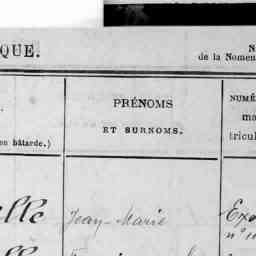 QUE.
N
de la Nomen
PRÉNOMS
ET SURNOMS.
NUMÉ
ma
tricul
en bâtarde.)
lle
Jean-Marie
Exe
n°